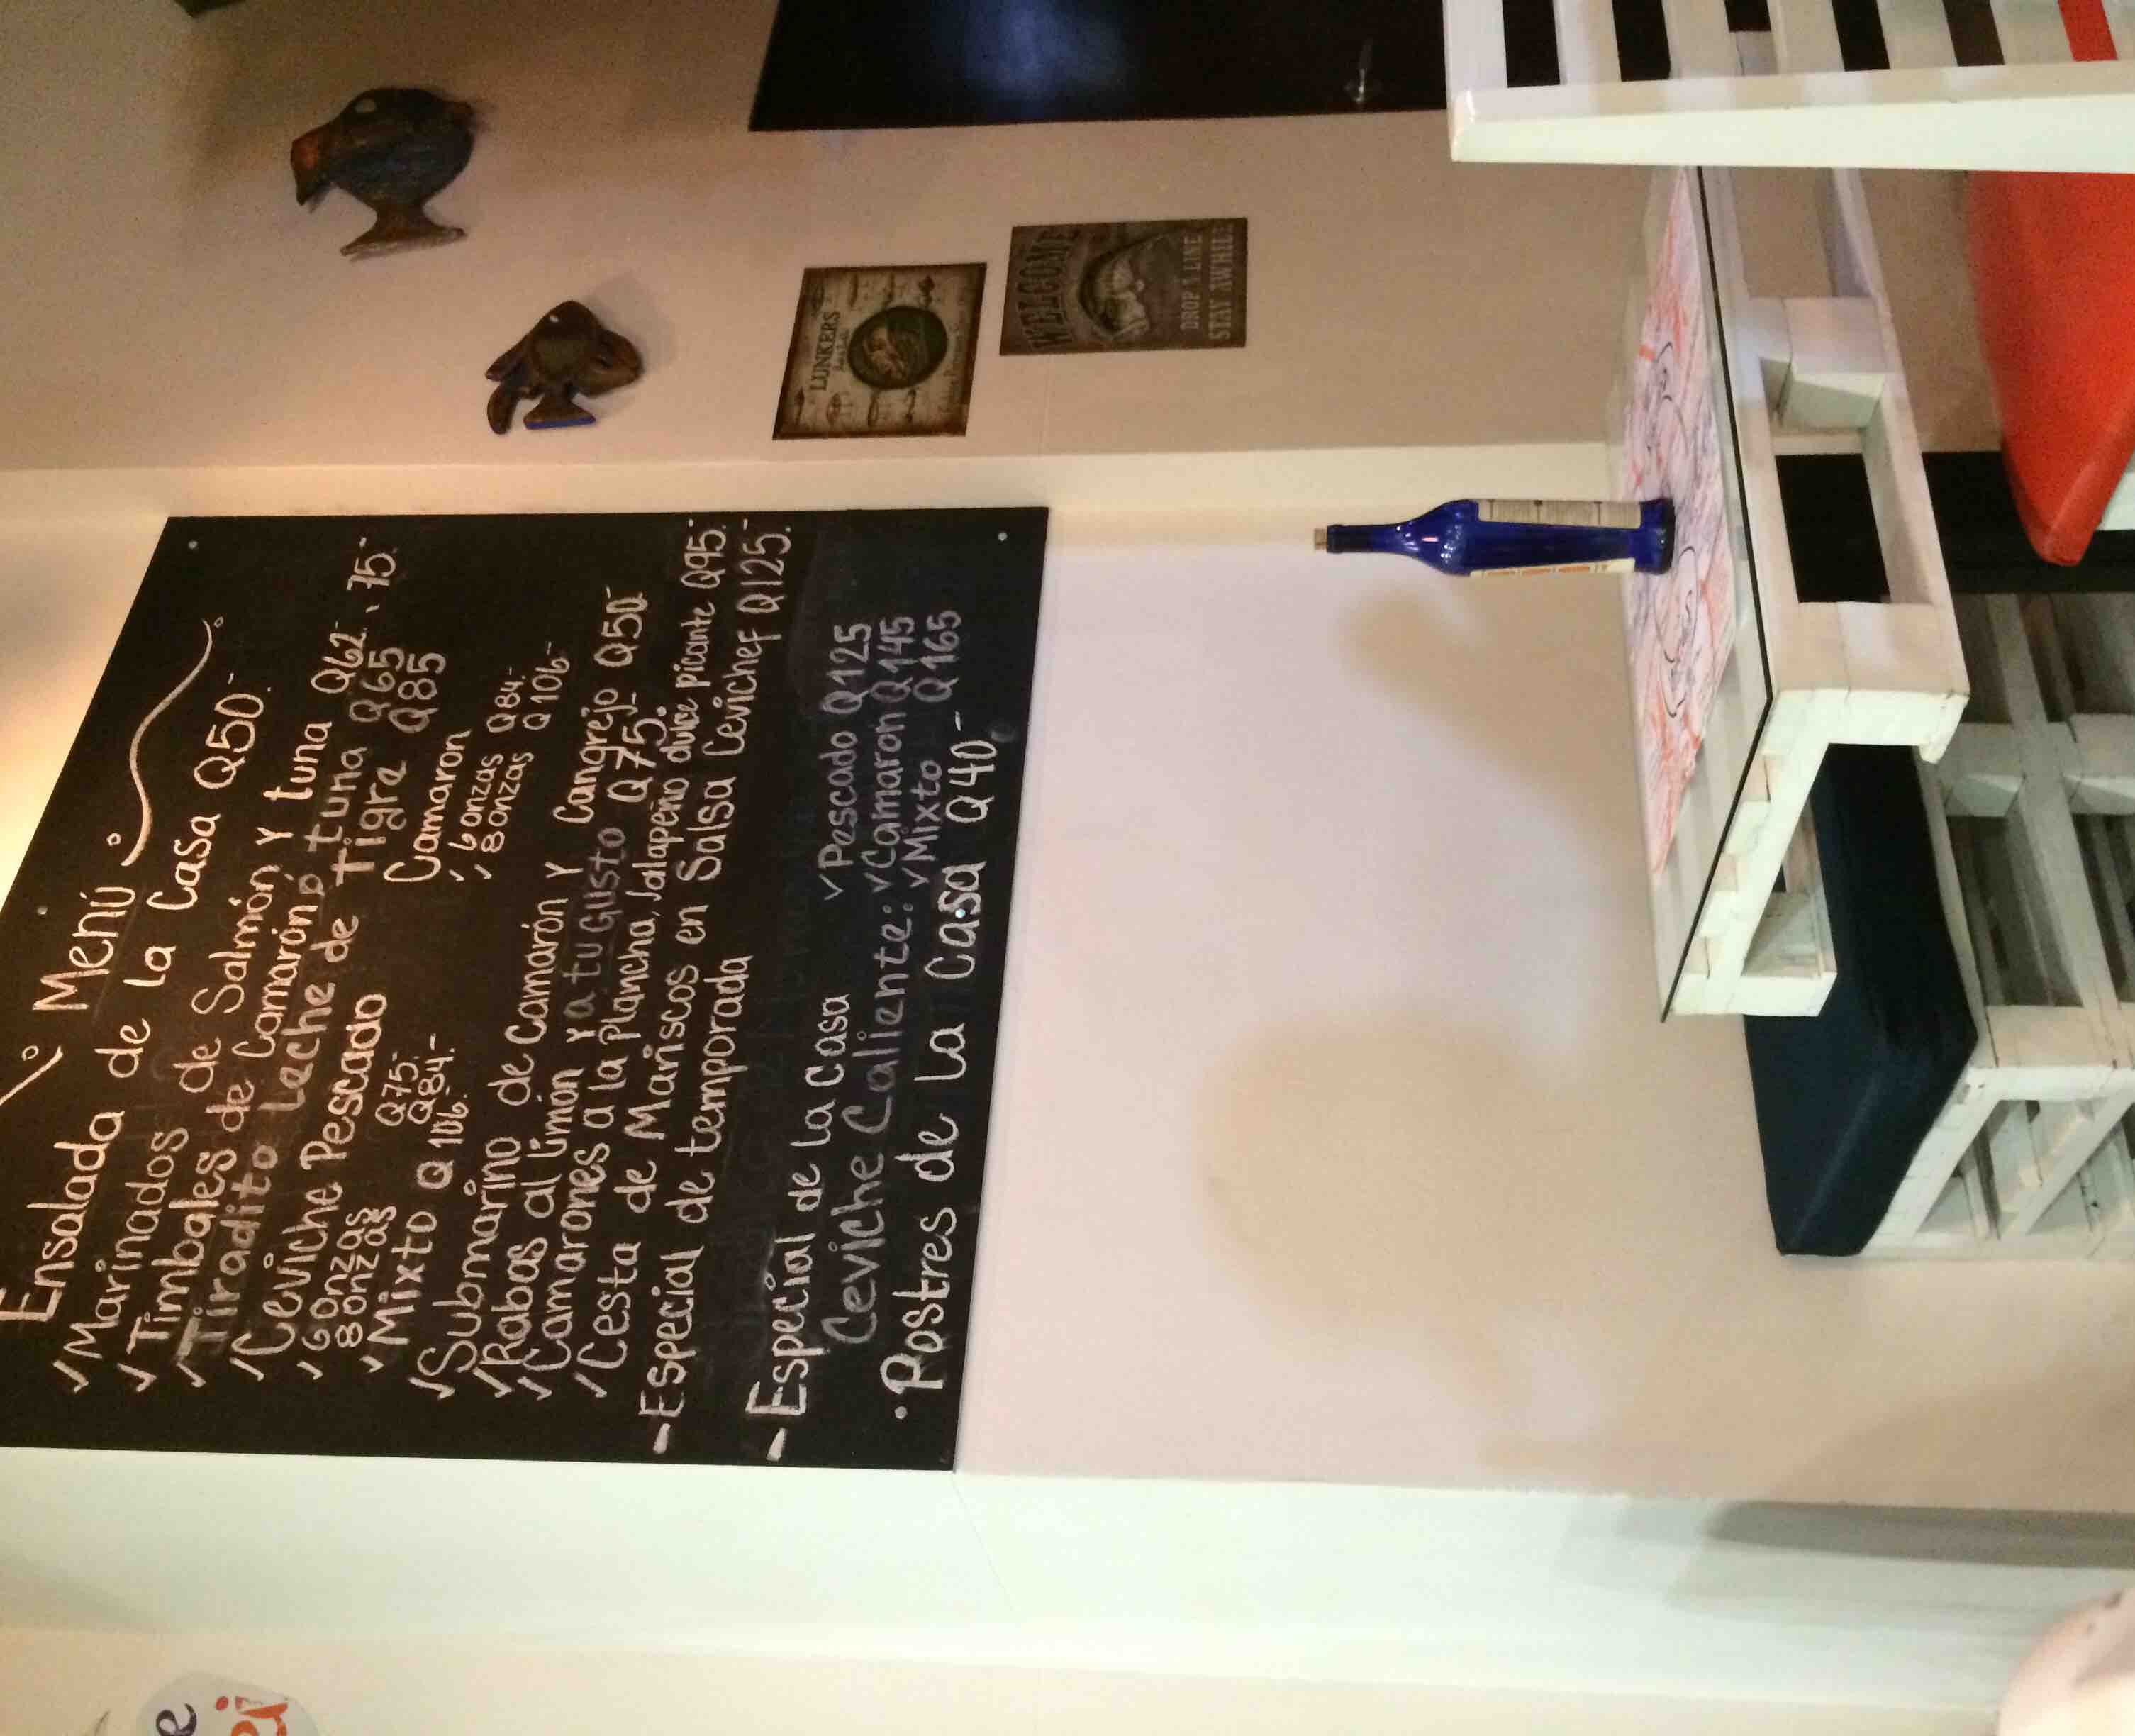 Menú
Ensalada de la Casa Q50.-
✓ Marinados
✓ Timbales de Salmón y tuna Q62.-, 75.-
✓ Tiradito de Camarón, tuna Q65
✓ Ceviche Leche de Tigre Q85
✓ Pescado
6onzas Q75.-
8onzas Q84.-
Camaron
✓ 6onzas Q84.-
✓ 8onzas Q106.-
✓ Mixto Q106.-
✓ Submarino de Camarón y Cangrejo Q50.-
✓ Rabas al limón y a tu Gusto Q75.-
✓ Camarones a la Plancha, Jalapeño dulce picante Q95.-
✓ Cesta de Mariscos en Salsa Cevichef Q125.-
- Especial de temporada
- Especial de la Casa
Ceviche Caliente: ✓ Pescado Q125
✓ Camaron Q145
✓ Mixto Q165
• Postres de La Casa Q40.-
LUNKERS
WELCOME
DROP A LINE
STAY AWHILE